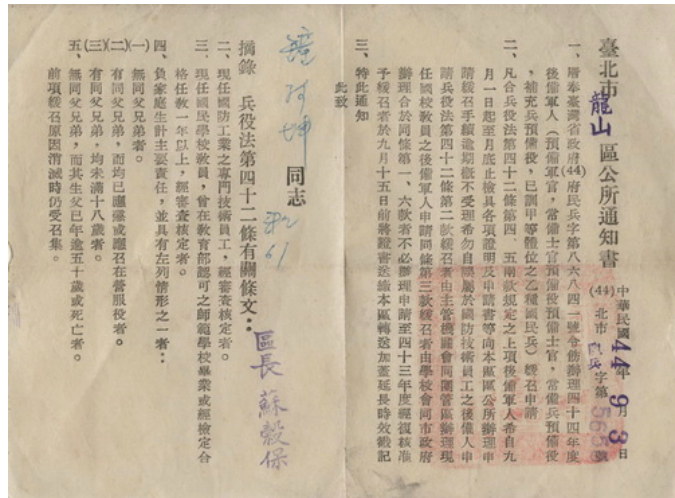 臺北市龍山區公所通知書
中華民國44年9月3日
(44)北市 兵字第565號
一、層奉臺灣省政府(44)府民兵字第八六八四一號令飭辦理四十四年度
後備軍人(預備軍官,常備士官預備役預備士官,常備兵預備役
,補充兵預備役,已訓甲等體位之乙種國民兵)緩召申請
二、凡合兵役法第四十二條第四、五兩款規定之上項後備軍人希自九
月一日起至月底止檢具各項證明及申請書等向本區區公所辦理申
請緩召手續逾期概不受理希勿自誤屬於國防技術員工之後備人申
請兵役法第四十二條第二款緩召者由主管機關會同團管區辦理現
任國校教員之後備軍人申請同條第三款緩召者由學校會同市政府
辦理合於同條第一、六款者不必辦理申請至四十三年度經復核准
予緩召者於九月十五日前將證書送繳本區轉送加蓋延長時效戳記
三、特此通知
此致
阿坤 同志
區長 蘇穀保
摘錄 兵役法第四十二條有關條文:
二、現任國防工業之專門技術員工,經審查核定者。
三、現任國民學校教員,曾在教育部認可之師範學校畢業或經檢定合
格任教一年以上,經審查核定者。
四、負家庭生計主要責任,並具有左列情形之一者:
(一)無同父兄弟者。
(二)有同父兄弟,而均已應徵或應召在營服役者。
(三)有同父兄弟,均未滿十八歲者。
五、無同父兄弟,而其生父已年逾五十歲或死亡者。
前項緩召原因消滅時仍受召集。